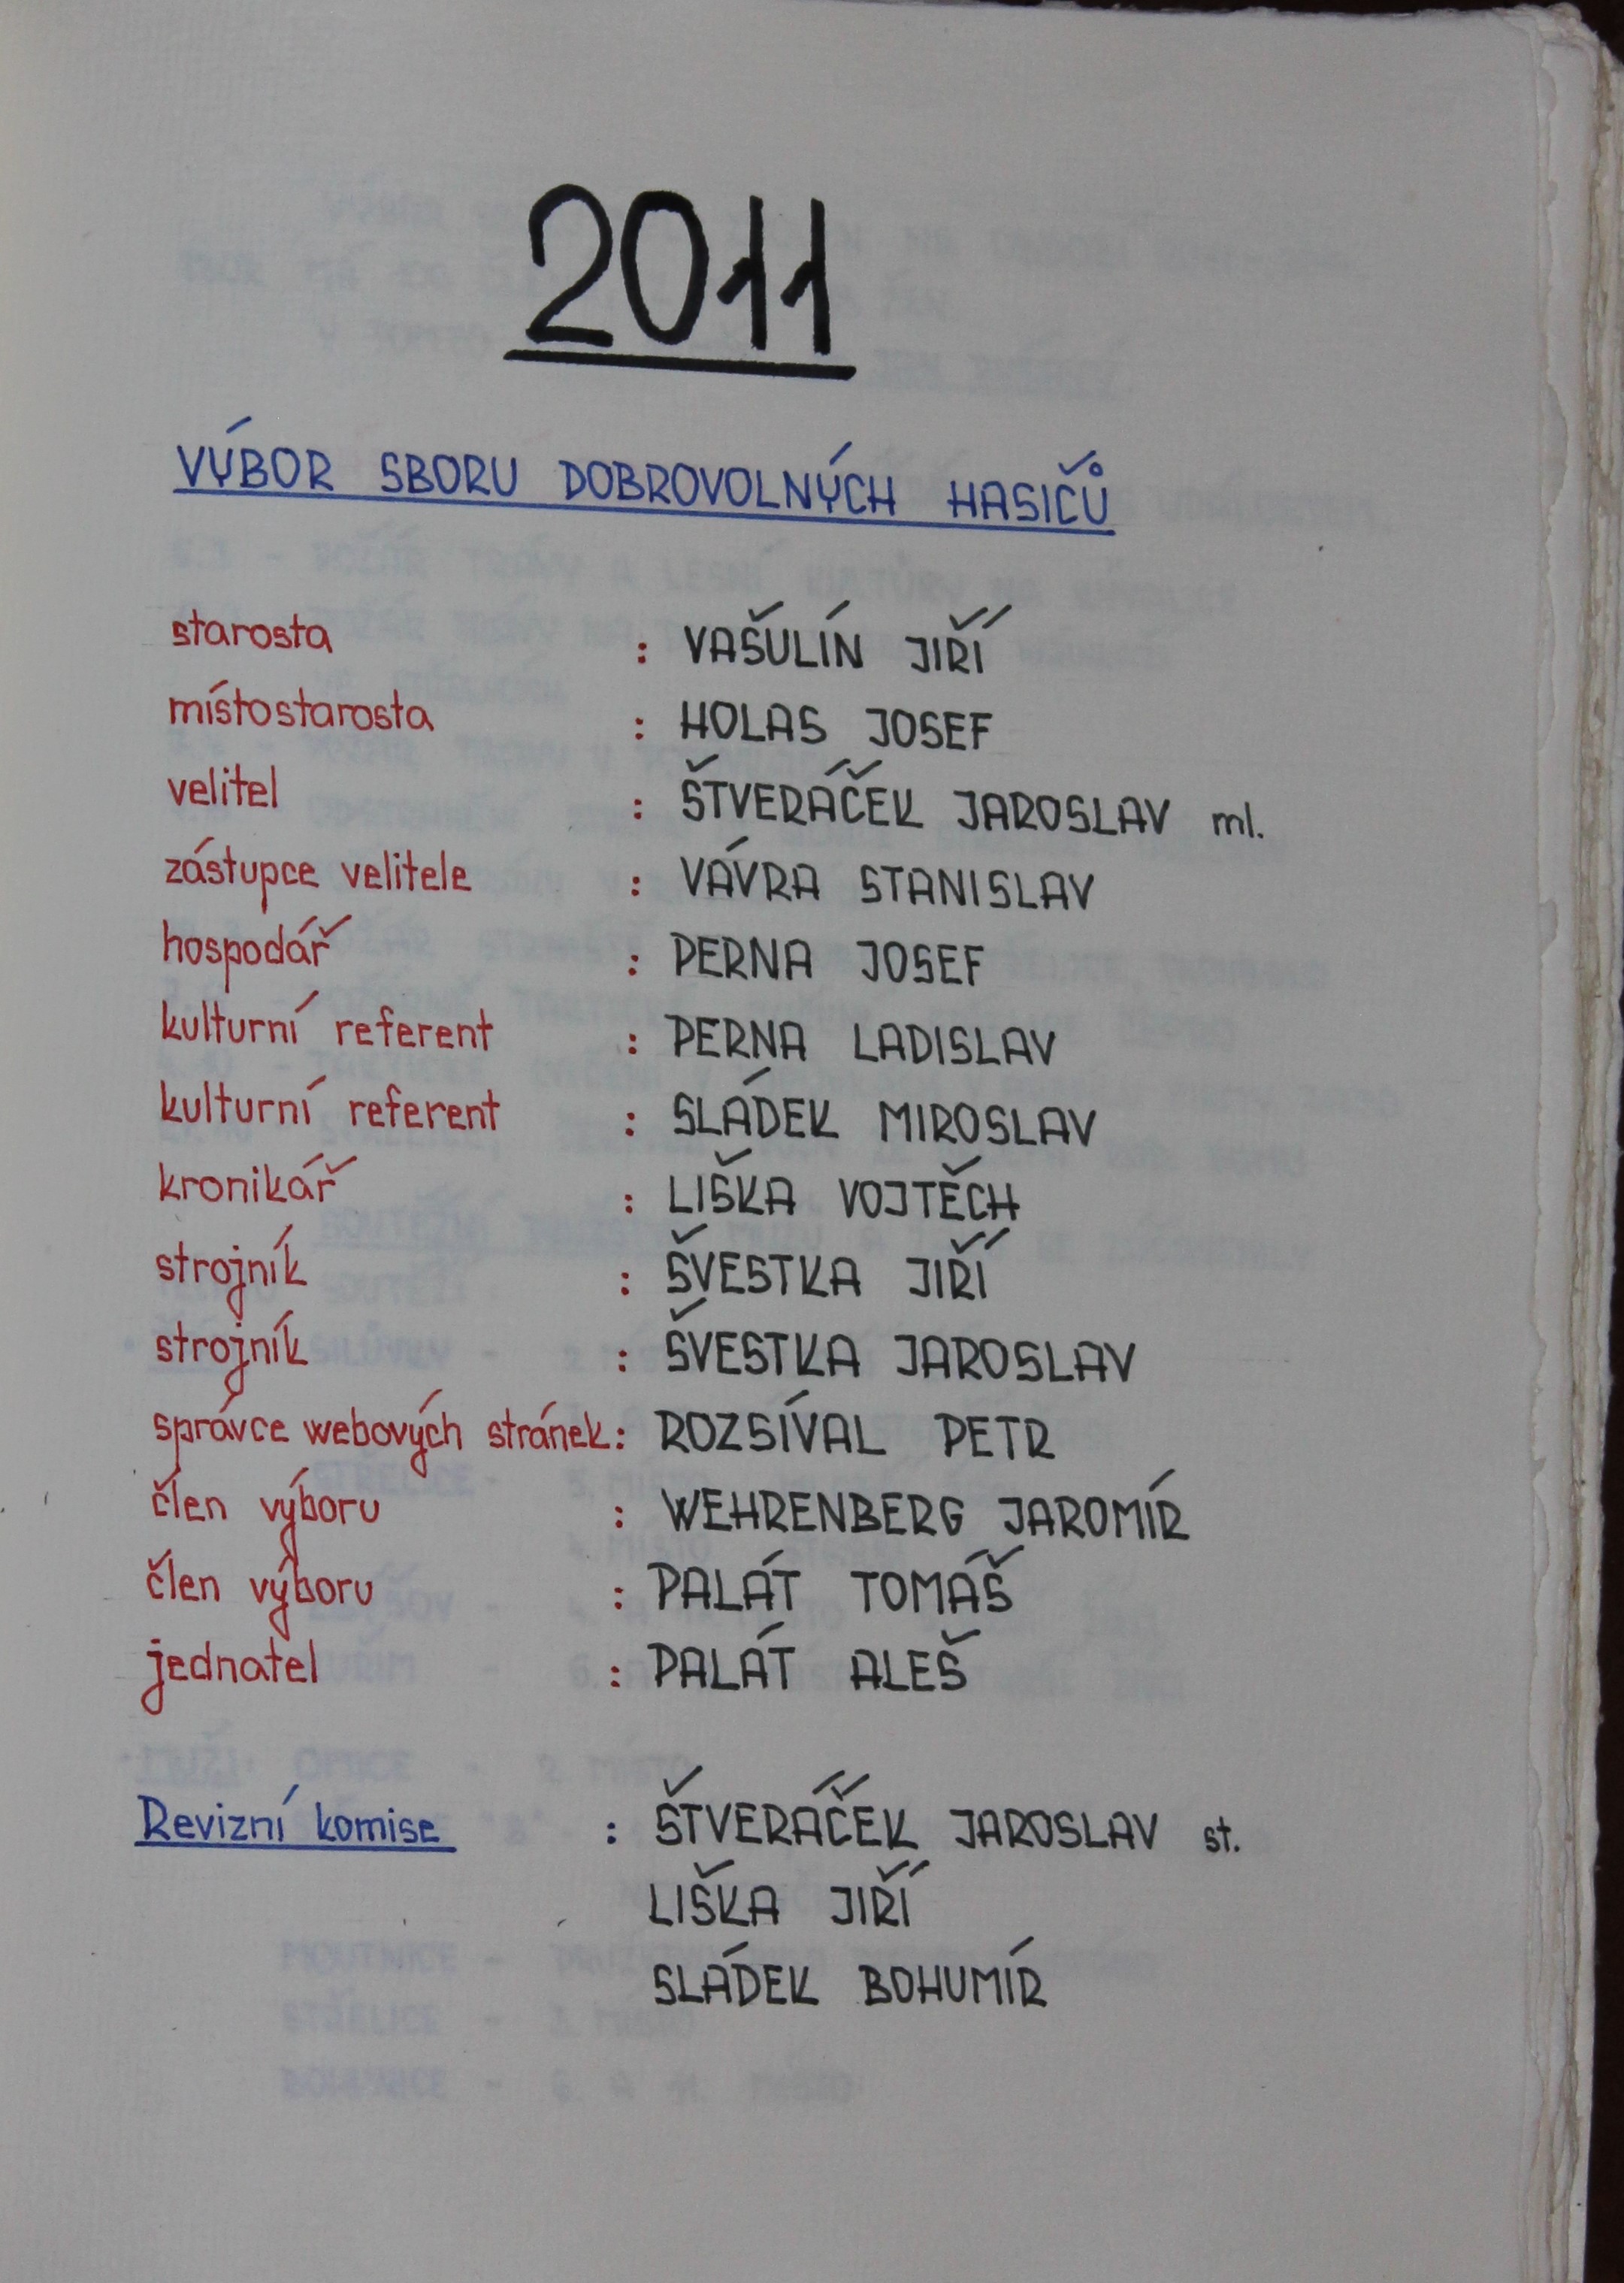 2011
VÝBOR SBORU DOBROVOLNÝCH HASIČŮ
starosta : VAŠULÍN JIŘÍ
místostarosta : HOLAS JOSEF
velitel : ŠTVERÁČEK JAROSLAV ml.
zástupce velitele : VÁVRA STANISLAV
hospodář : PERNA JOSEF
kulturní referent : PERNA LADISLAV
kulturní referent : SLÁDEK MIROSLAV
kronikář : LIŠKA VOJTĚCH
strojník : ŠVESTKA JIŘÍ
strojník : ŠVESTKA JAROSLAV
správce webových stránek : ROZSÍVAL PETR
člen výboru : WEHRENBERG JAROMÍR
člen výboru : PALÁT TOMÁŠ
jednatel : PALÁT ALEŠ
Revizní komise : ŠTVERÁČEK JAROSLAV st.
LIŠKA JIŘÍ
SLÁDEK BOHUMÍR